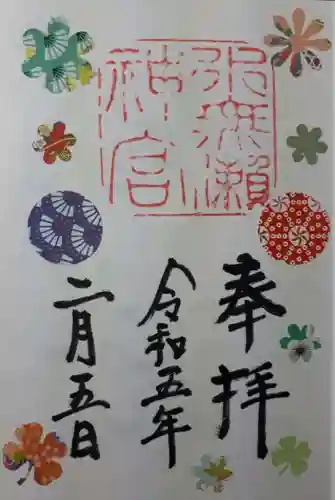 水無瀬
神宮
奉拝
令和五年
二月五日